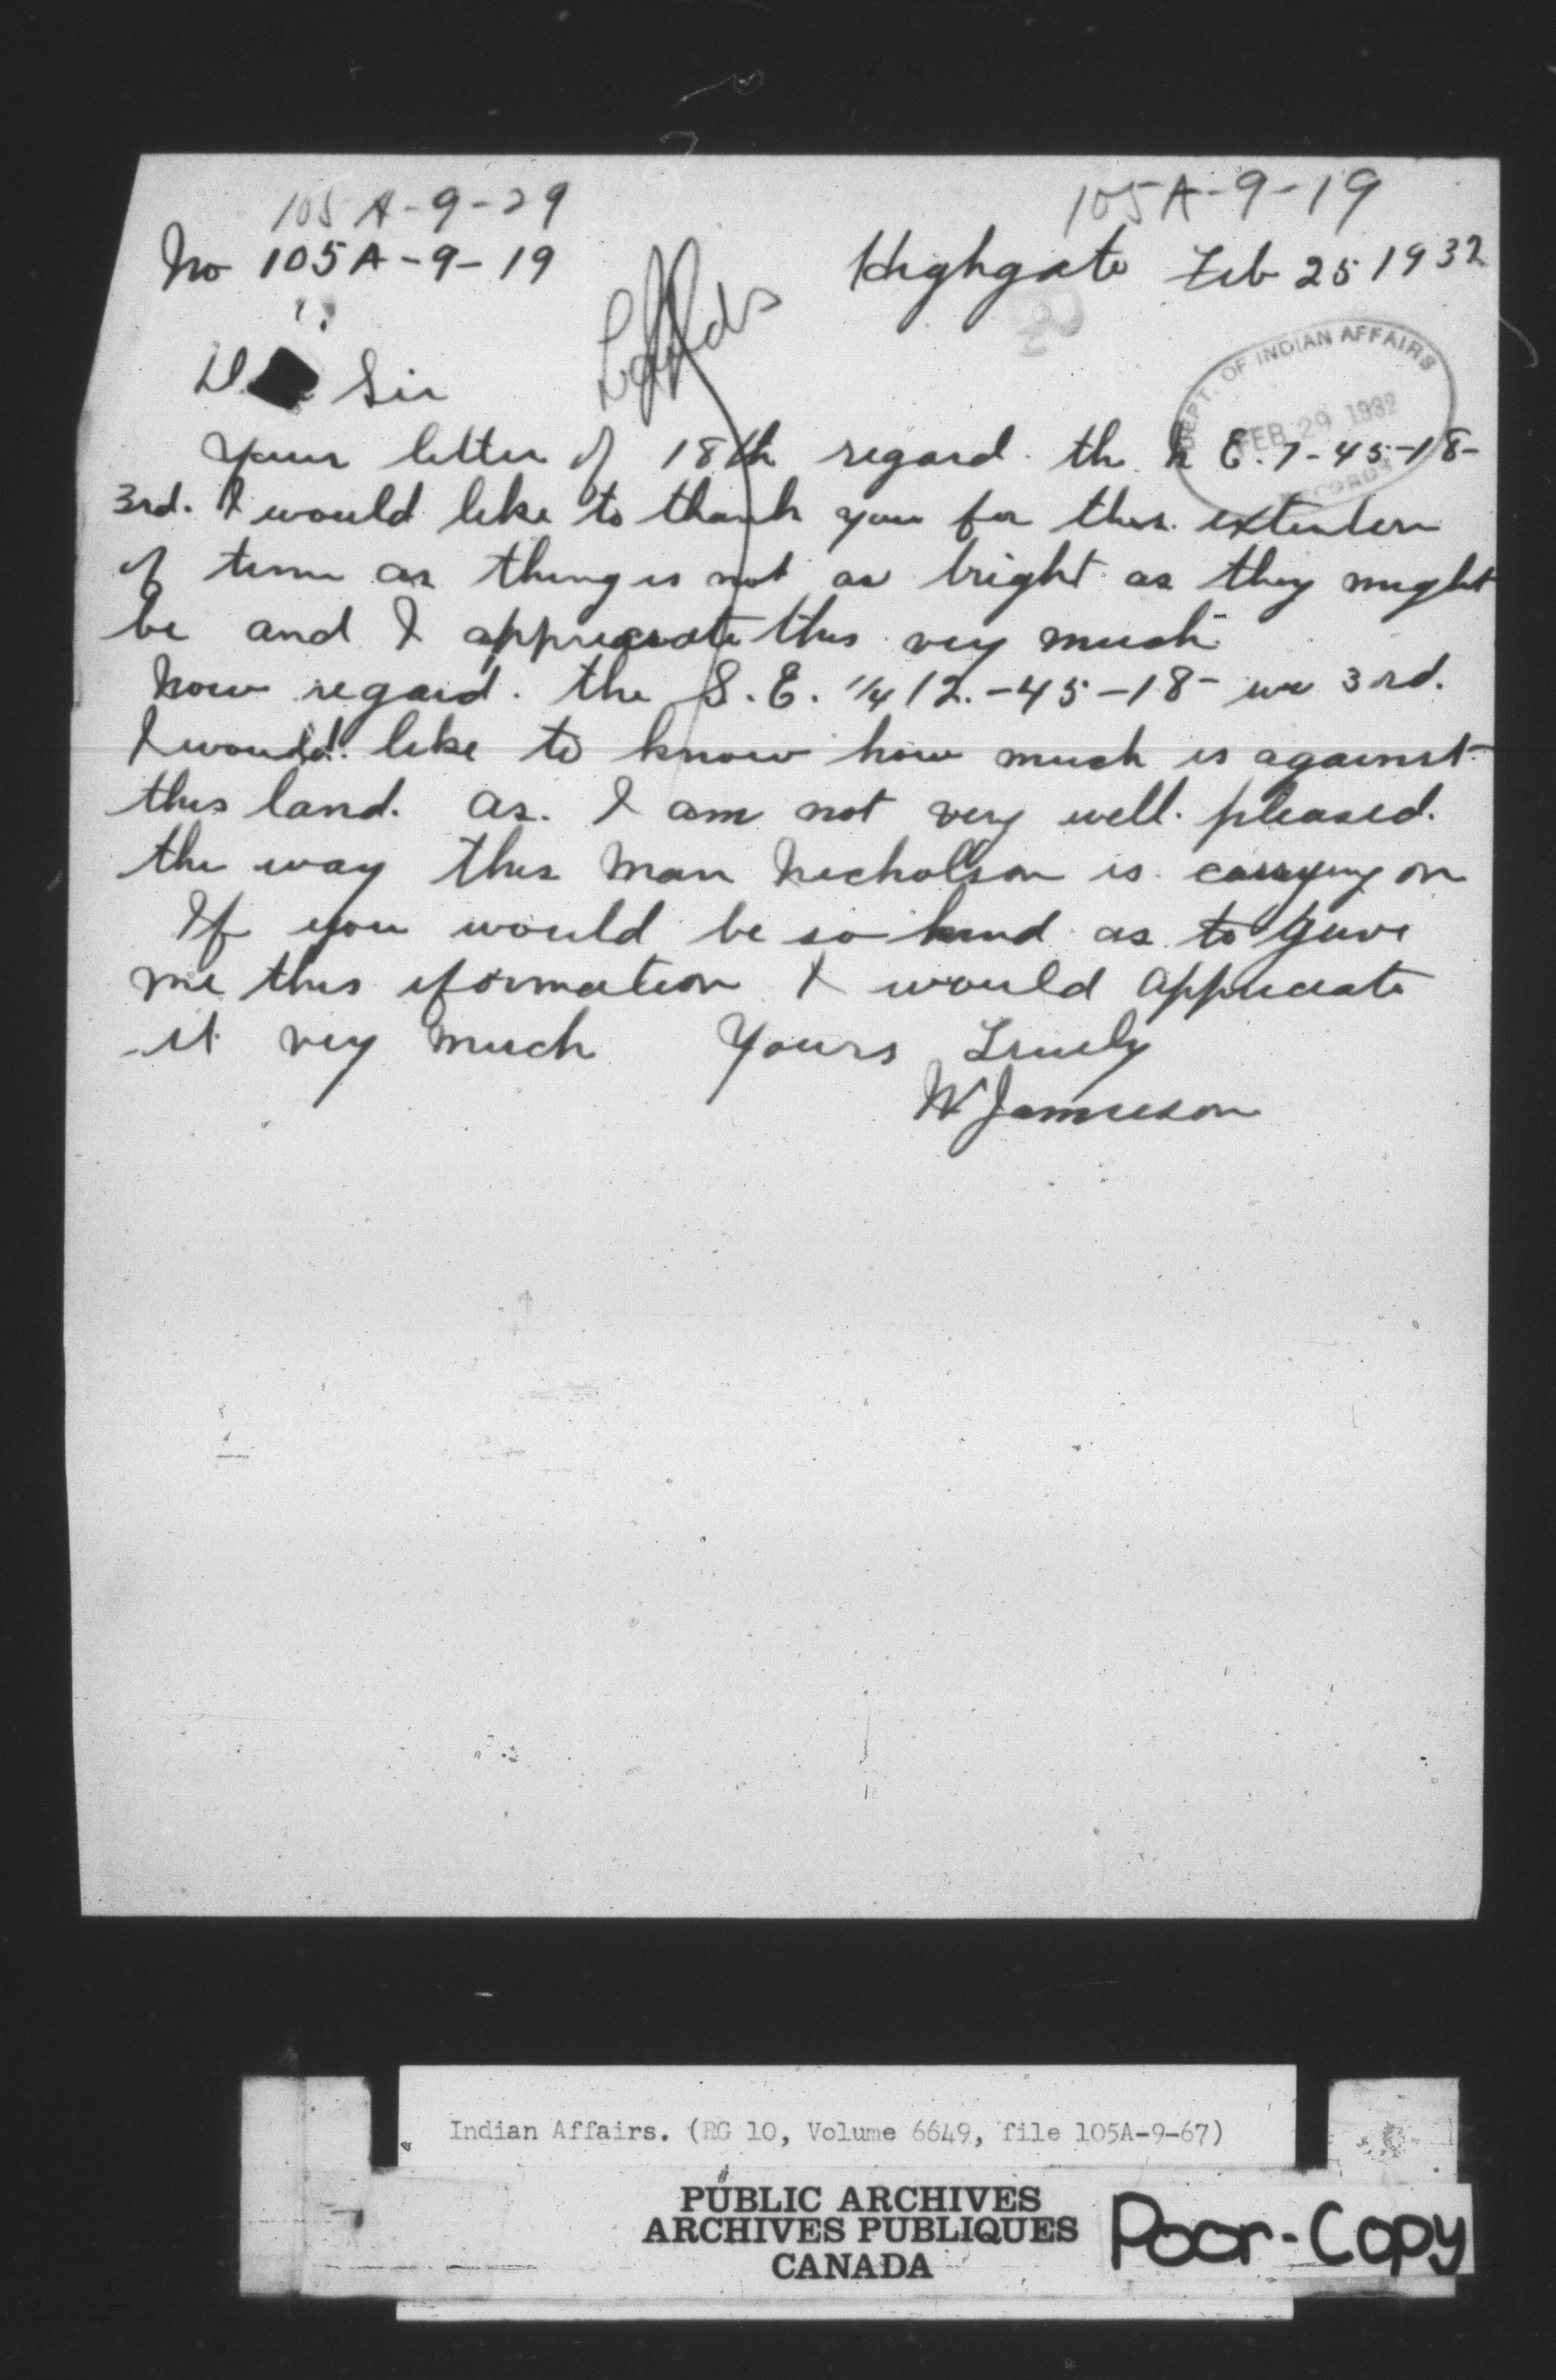 105A-9-29
105A-9-19
No 105A-9-19
Highgate Feb 25 1932
Lands
DEPT. OF INDIAN AFFAIRS
FEB 29 1932
RECORDS
Sir
Your letter of 18th regard. the N E. 7-45-18-
3rd. I would like to thank you for this extention
of time as thing is not as bright as they might
be and I appreciate this very much
Now regard. the S.E. 1/4 12.-45-18- w 3rd.
I would like to know how much is against
this land. as. I am not very well. pleased.
the way this man Nicholson is carrying on
If you would be so kind as to give
me this iformation I would appreciate
it very much Yours Truely
W Jamieson
Indian Affairs. (RG 10, Volume 6649, file 105A-9-67)
PUBLIC ARCHIVES
ARCHIVES PUBLIQUES
CANADA
Poor-Copy